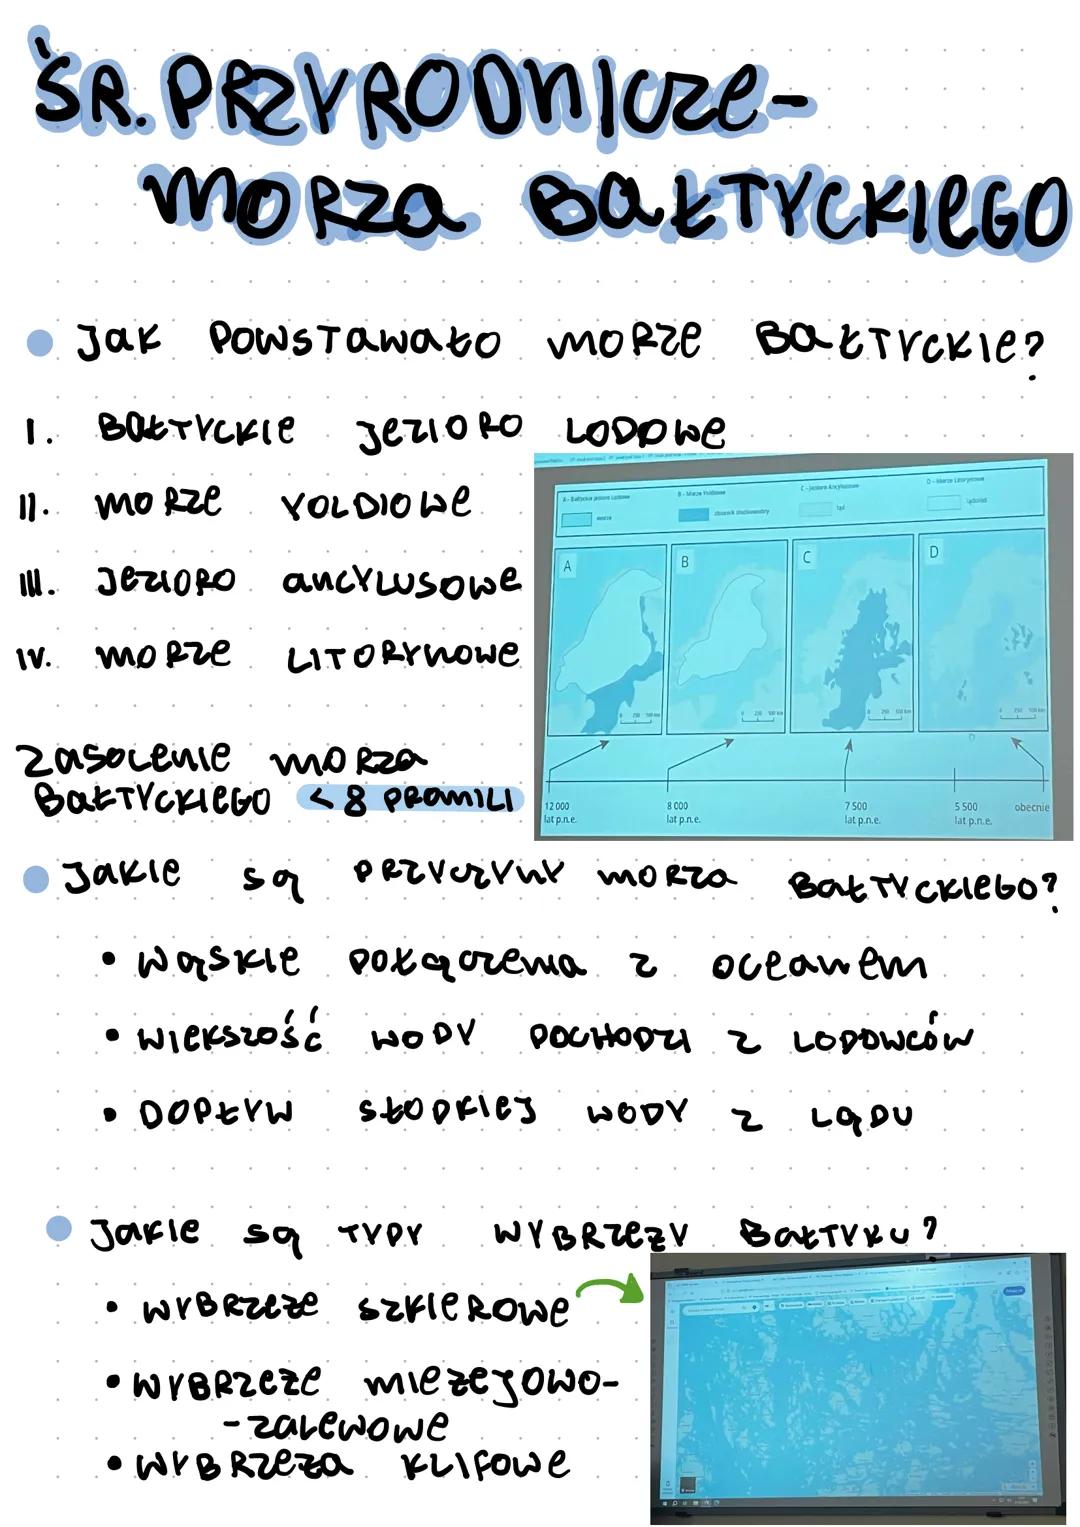 ŚR. PRZYRODNICZE-
MORZA BAŁTYCKIEGO
JAK POWSTAWAŁO MORZE BAŁTYCKIE?
I. BAŁTYCKIE JEZIORO LODOWE
II. MORZE YOLDIOWE
III. JEZIORO ANCYLUSOWE
IV. MORZE LITORYNOWE
A - Bałtyckie Jezioro Lodowe
B - Morze Yoldiowe
C - Jezioro Ancylusowe
D - Morze Litorynowe
morze
zbiornik śródlądowy
ląd
lądolód
A B C D
12 000 lat p.n.e.
8 000 lat p.n.e.
7 500 lat p.n.e.
5 500 lat p.n.e.
obecnie
ZASOLENIE MORZA
BAŁTYCKIEGO < 8 PROMILI
JAKIE Są PRZYCZYNY MORZA BAŁTYCKIEGO?
• WąSKIE POŁąCZENIA Z OCEANEM
• WIEKSZOŚĆ WODY POCHODZI Z LODOWCÓW
• DOPŁYW SŁODKIEJ WODY Z LąDU
JAKIE Są TYPY WYBRZEZY BAŁTYKU?
• WYBRZEŻE SZKIEROWE
• WYBRZEŻE MIEŻEJOWO-
-ZALEWOWE
• WYBRZEŻA KLIFOWE